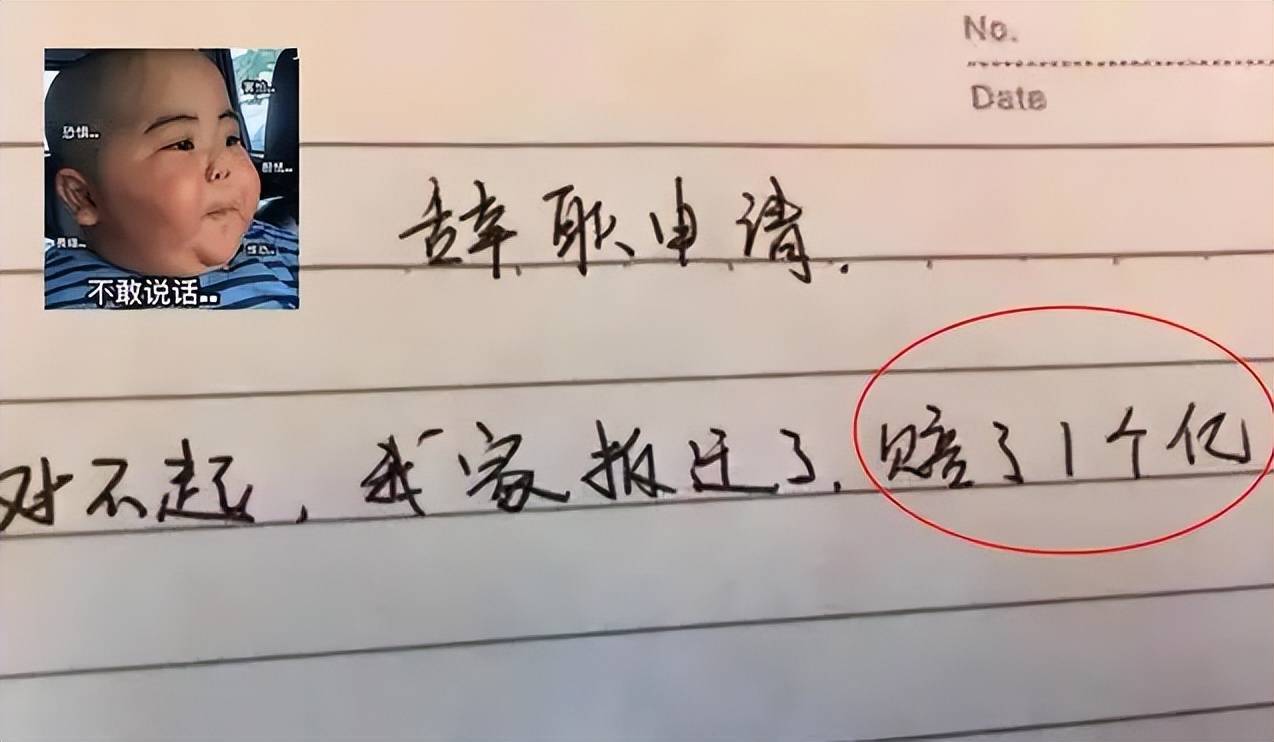 No.
Date
恐惧..
不敢说话..
辞职申请.
对不起，我家拆迁了，赔了1个亿